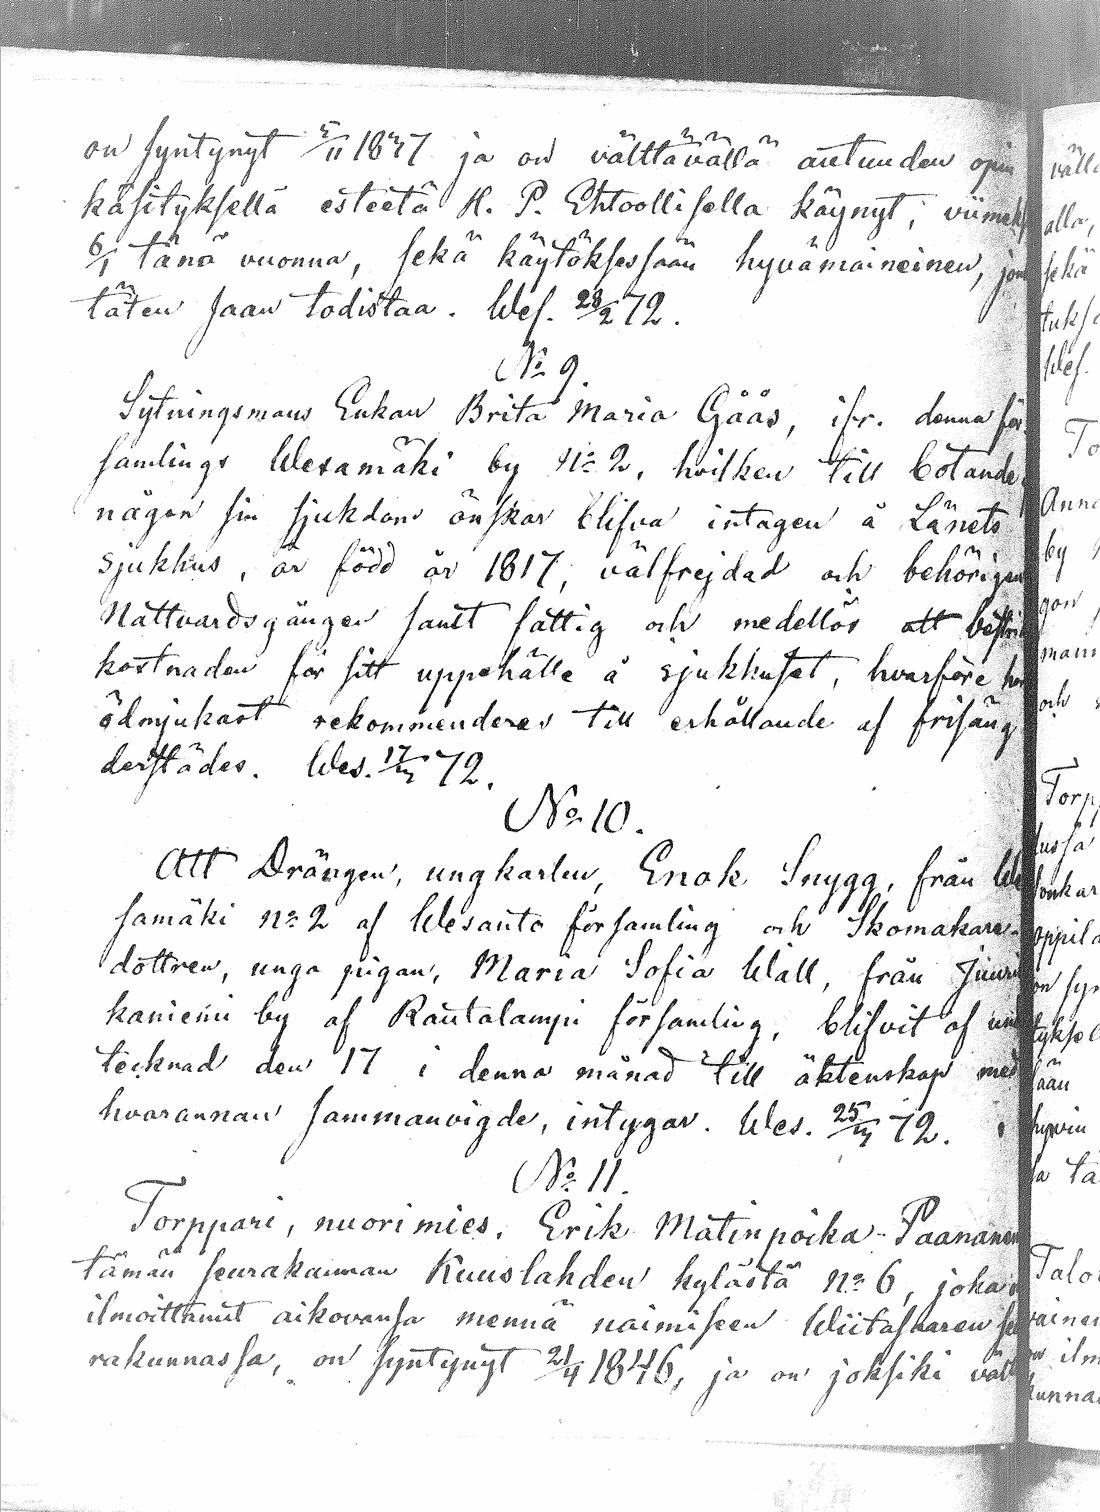 on syntynyt 5/11 1847 ja on välttävällä autuuden opin
käsityksellä esteetä H. P. Ehtoollisella käynyt, viimeksi
6/1 tänä vuonna, sekä käytöksessään hyvämaineinen, jon
täten saan todistaa. Wes. 28/2 72.
No 9.
Sytningsmans Enkan Brita Maria Gåås, ifr. denna för-
samlings Wesamäki by no 2, hvilken till botande
någon sin sjukdom önskar blifva intagen å Länets
sjukhus, är född år 1817, välfrejdad och behörigen
Nattvardsgången samt fattig och medellös att bestri
kostnaden för sitt uppehälle å sjukhuset, hvarföre hon
ödmjukast rekommenderas till erhållande af frisäng
derstädes. Wes. 17/4 72.
No 10.
Att Drängen, ungkarlen, Enok Snygg, från We
samäki no 2 af Wesanto församling och Skomakare-
dottren, unga pigan, Maria Sofia Wäll, från Jouni
kaniemi by af Rautalampi församling, blifvit af und
tecknad den 17 i denna månad till äktenskap med
hvarannan sammanvigde, intygar. Wes. 25/4 72.
No 11.
Torppari, nuori mies, Erik Matinpoika Paananen
tämän seurakunnan Kuuslahden kylästä no 6, joka
ilmoittanut aikovansa mennä naimiseen Wiitasaaren seu
rakunnassa, on syntynyt 21/4 1846, ja on joksiki vält